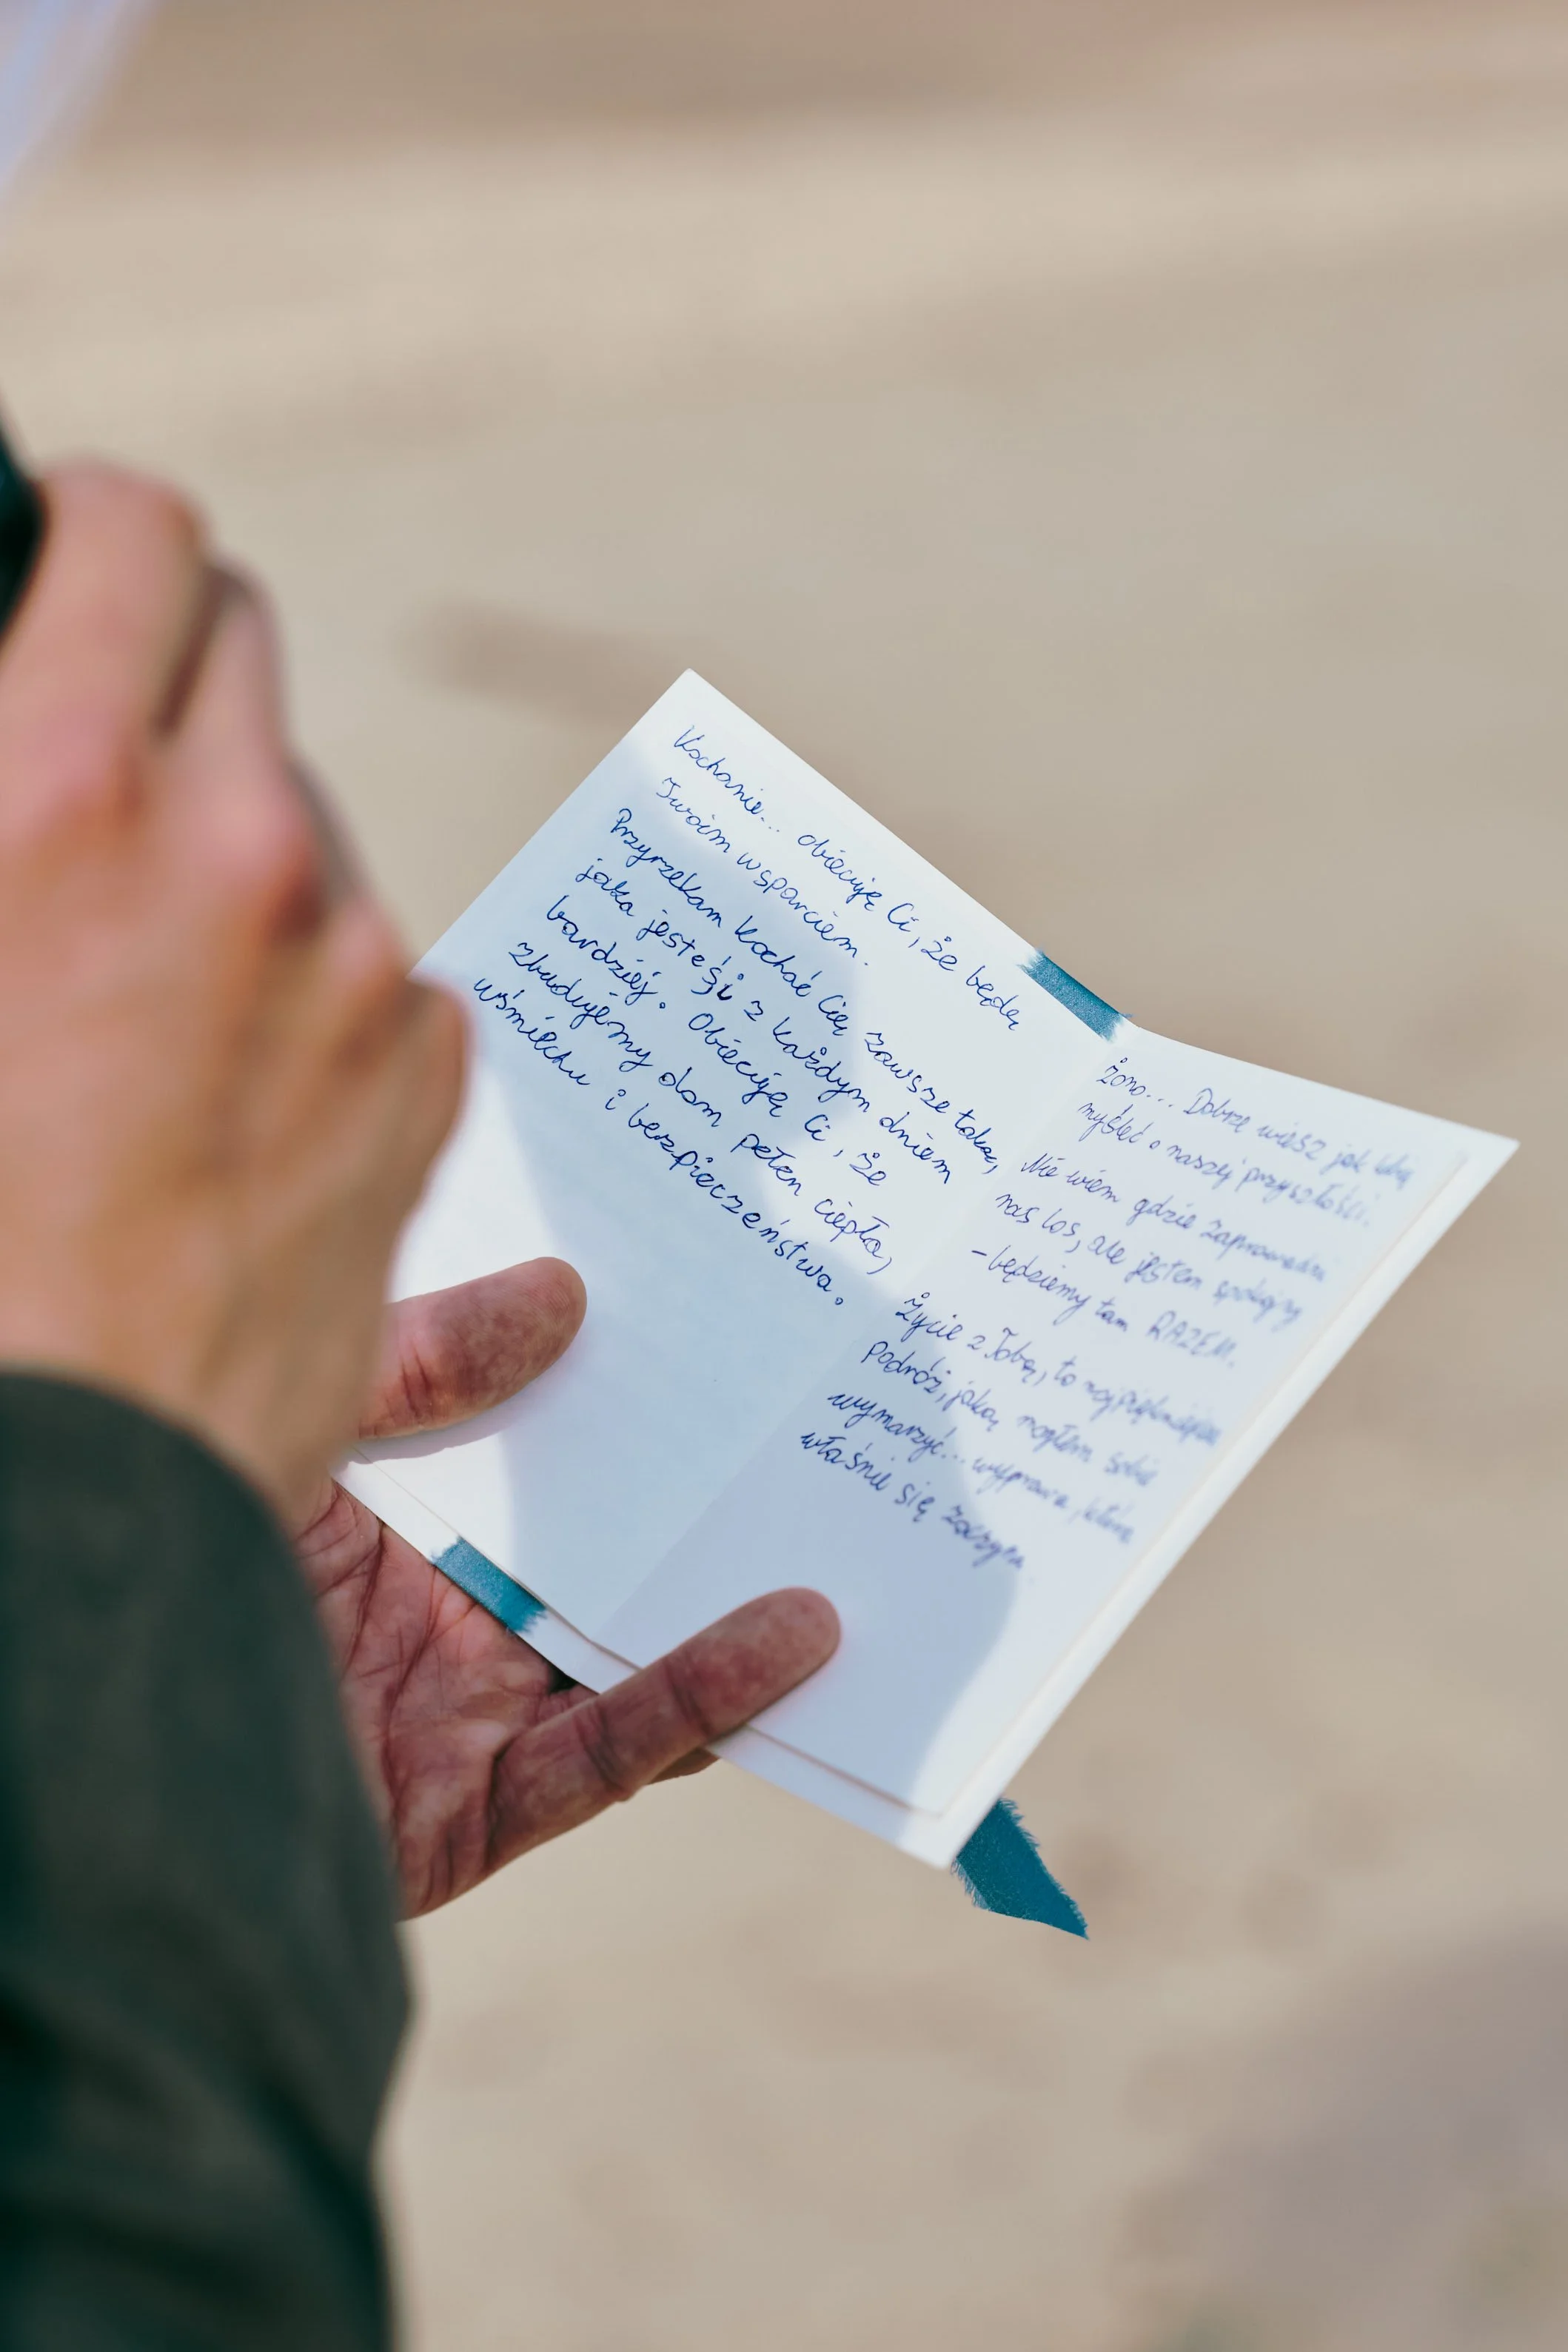 Kochanie... obiecuję Ci, że będę
Twoim wsparciem.
Przyrzekam kochać Cię zawsze taką,
jaka jesteś i z każdym dniem
bardziej. Obiecuję Ci, że
zbudujemy dom pełen ciepła,
uśmiechu i bezpieczeństwa.
Żono... Dobrze wiesz jak lubię
myśleć o naszej przyszłości.
Nie wiem gdzie zaprowadzi
nas los, ale jestem spokojny
- będziemy tam RAZEM.
Życie z Tobą, to najpiękniejsza
podróż, jaką mogłem sobie
wymarzyć... wyprawa, która
właśnie się zaczyna.